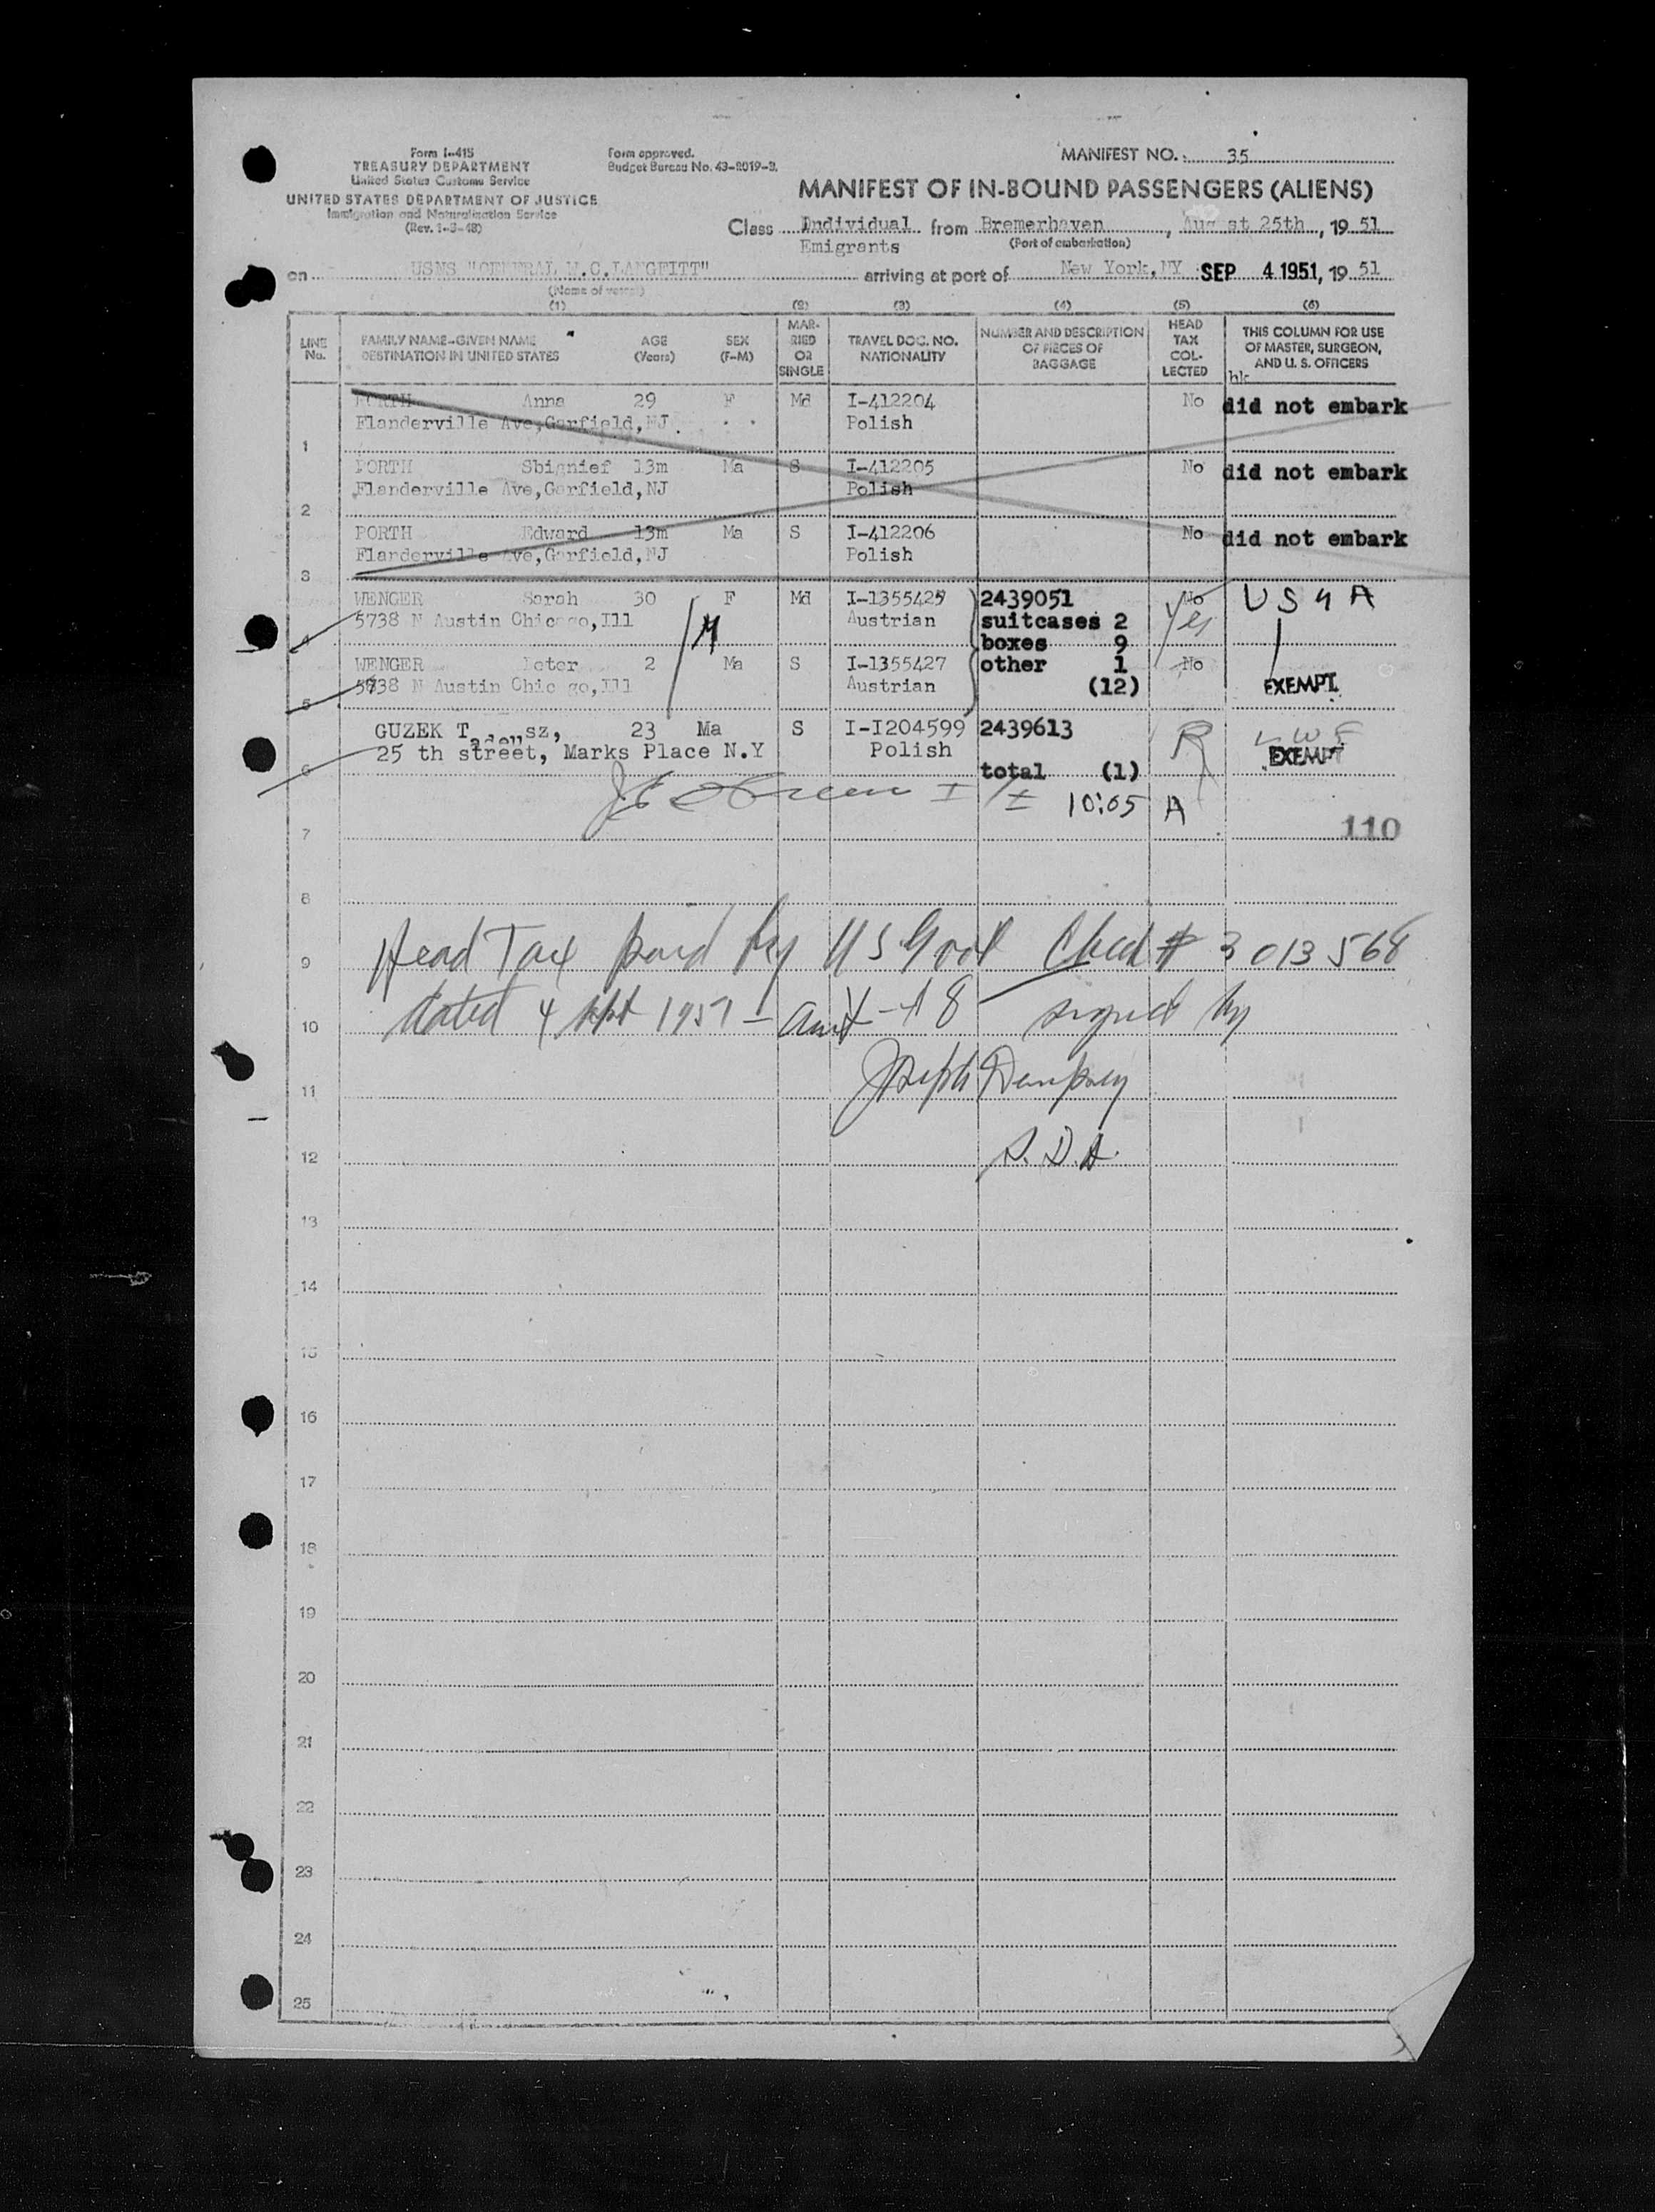 Form I-415
TREASURY DEPARTMENT
United States Customs Service
UNITED STATES DEPARTMENT OF JUSTICE
Immigration and Naturalization Service
(Rev. 1-3-48)
Form approved.
Budget Bureau No. 43-R019-3.
MANIFEST NO. 35
MANIFEST OF IN-BOUND PASSENGERS (ALIENS)
Class Individual from Bremerhaven, August 25th, 19 51
Emigrants (Port of embarkation)
on USNS "GENERAL W.C.LANGFITT" arriving at port of New York, NY SEP 4 1951, 19 51
(Name of vessel)
(1) (2) (3) (4) (5) (6)
LINE No. FAMILY NAME-GIVEN NAME DESTINATION IN UNITED STATES AGE (Years) SEX (F-M) MARRIED OR SINGLE TRAVEL DOC. NO. NATIONALITY NUMBER AND DESCRIPTION OF PIECES OF BAGGAGE HEAD TAX COLLECTED THIS COLUMN FOR USE OF MASTER, SURGEON, AND U. S. OFFICERS
PORTH Anna 29 F Md I-412204 No did not embark
Flanderville Ave,Garfield,NJ. Polish
1
PORTH Sbignief 13m Ma S I-412205 No did not embark
Flanderville Ave,Garfield,NJ Polish
2
PORTH Edward 13m Ma S I-412206 No did not embark
Flanderville Ave,Garfield,NJ Polish
3
WENGER Sarah 30 F Md I-1355425 2439051 No USNA
5738 N Austin Chicago,Ill M Austrian suitcases 2 Yes
4 boxes 9
WENGER Peter 2 Ma S I-1355427 other 1 No
5738 N Austin Chicago,Ill Austrian (12) EXEMPT
5
GUZEK Tadeusz, 23 Ma S I-I204599 2439613 R LWF
25 th street, Marks Place N.Y Polish EXEMPT
6 total (1)
10:05 A
7 110
8
9 Head Tax paid by US Govt Check # 3013568
10 dated 4 Sept 1951 – amt – $8 – signed by
11 Joseph Dempsey
12
13
14
15
16
17
18
19
20
21
22
23
24
25